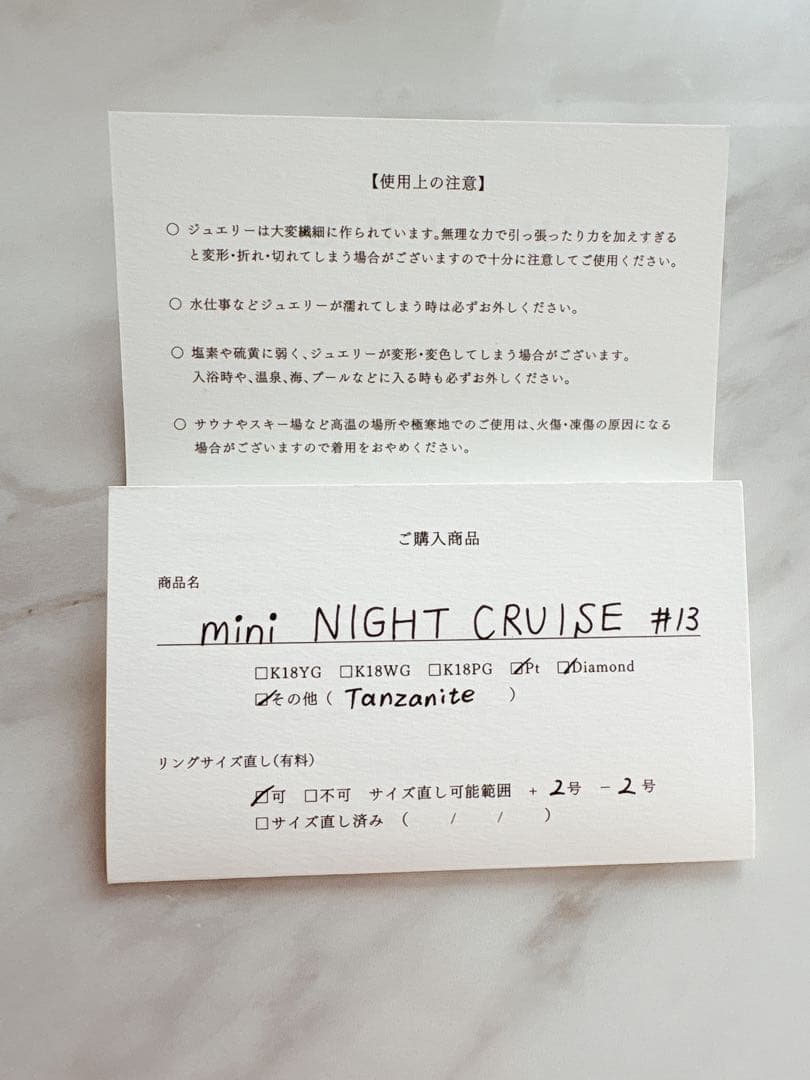 【使用上の注意】
○ ジュエリーは大変繊細に作られています。無理な力で引っ張ったり力を加えすぎる
と変形・折れ・切れてしまう場合がございますので十分に注意してご使用ください。
○ 水仕事などジュエリーが濡れてしまう時は必ずお外しください。
○ 塩素や硫黄に弱く、ジュエリーが変形・変色してしまう場合がございます。
入浴時や、温泉、海、プールなどに入る時も必ずお外しください。
○ サウナやスキー場など高温の場所や極寒地でのご使用は、火傷・凍傷の原因になる
場合がございますので着用をおやめください。
ご購入商品
商品名
mini NIGHT CRUISE #13
□K18YG □K18WG □K18PG ☑Pt ☑Diamond
☑その他（ Tanzanite ）
リングサイズ直し(有料)
☑可 □不可 サイズ直し可能範囲 + 2号 − 2号
□サイズ直し済み （ / / ）